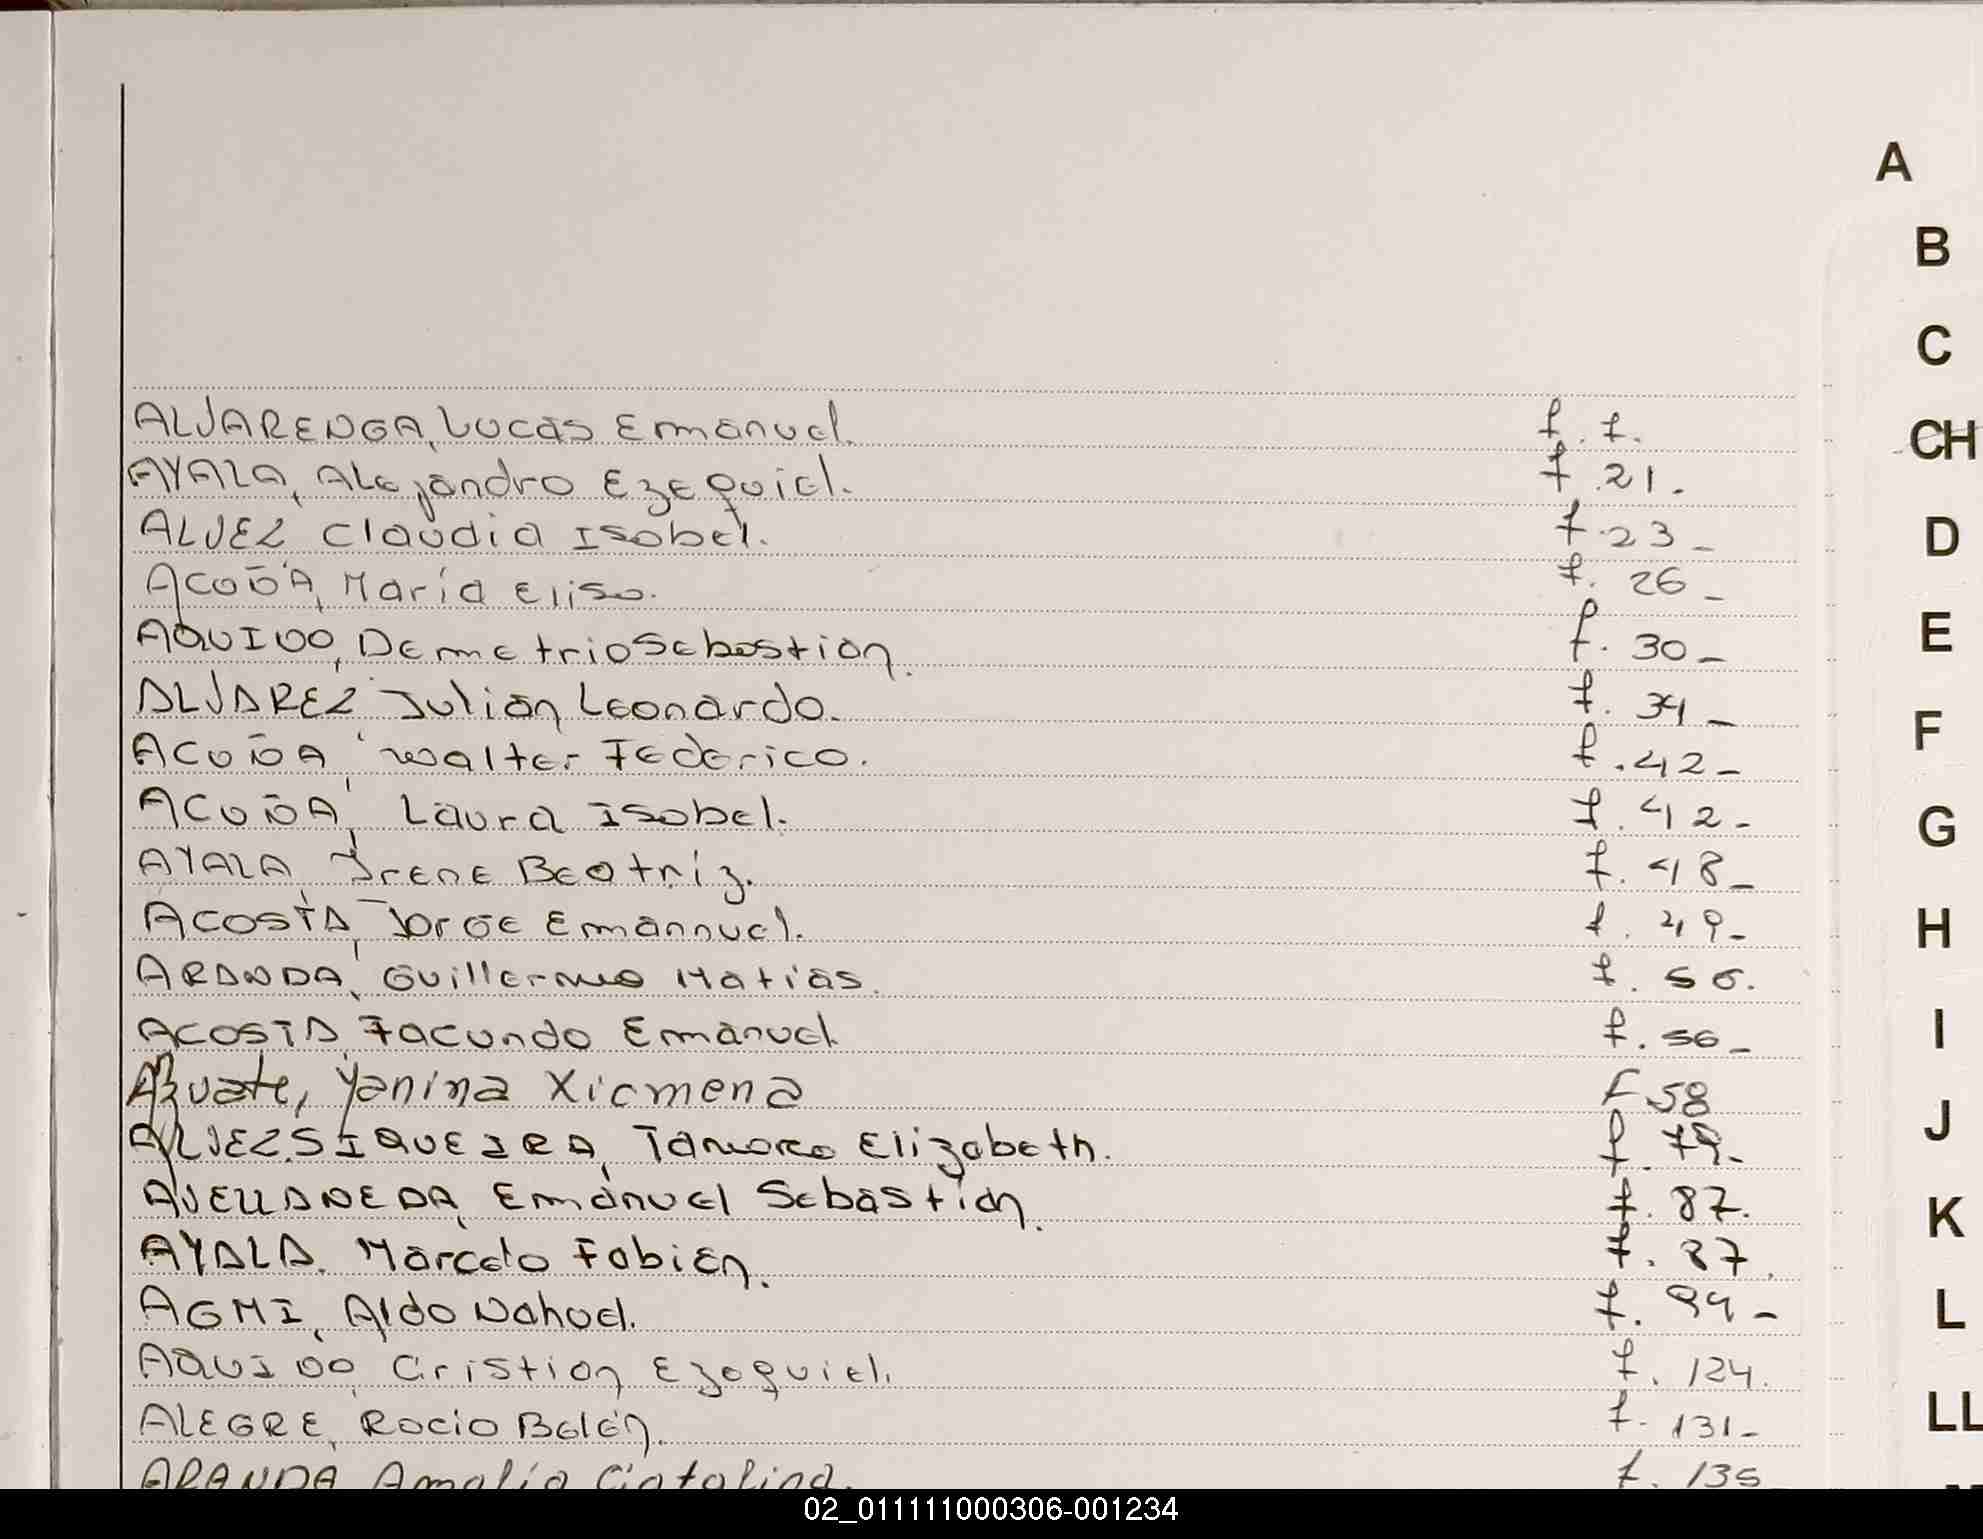 A
B
C
CH
D
E
F
G
H
I
J
K
L
LL
ALVARENGA, Lucas Emanuel. f. 7.
AYALA, Alejandro Ezequiel. f. 21.
ALVEZ Claudia Isabel. f. 23-
ACUÑA, María Elisa. f. 26-
AQUINO, Demetrio Sebastian. f. 30-
ALVAREZ Julián Leonardo. f. 34-
ACUÑA, Walter Federico. f. 42-
ACUÑA, Laura Isabel. f. 42-
AYALA, Irene Beatriz. f. 48-
ACOSTA, Jorge Emannuel. f. 49-
ARANDA, Guillermo Matias. f.
ACOSTA, Facundo Emanuel f. 56-
Azuate, Yanina Xicmena F 58
ALVEZ SIQUEIRA, Tamara Elizabeth. f. 79-
AVELLANEDA, Emanuel Sebastián. f. 87.
AYALA, Marcelo Fabián. f. 87.
AGMI, Aldo Nahuel. f. 94-
AQUINO, Cristian Ezequiel. f. 124.
ALEGRE, Rocio Belén. f. 131-
ARANDA Amalia Catalina. f. 135
02_011111000306-001234